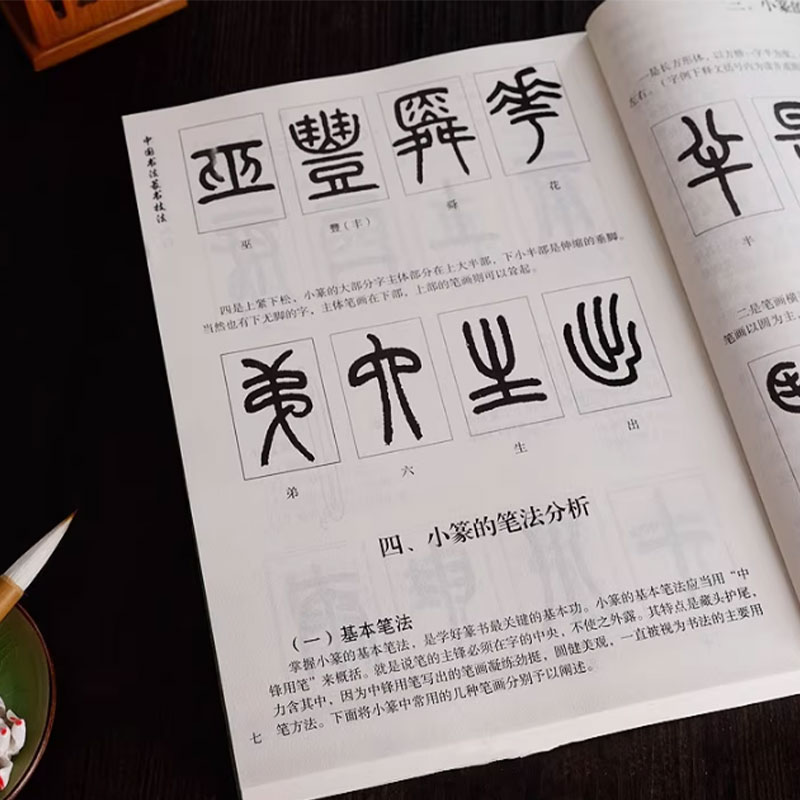 中国书法篆书技法
巫 豐 舜 花
巫 豐(丰) 舜 花
四是上紧下松，小篆的大部分字主体部分在上大半部，下小半部是伸缩的垂脚。
当然也有下无脚的字，主体笔画在下部，上部的笔画则可以耸起。
弟 六 生 出
弟 六 生 出
四、小篆的笔法分析
（一）基本笔法
掌握小篆的基本笔法，是学好篆书最关键的基本功。小篆的基本笔法应当用“中
锋用笔”来概括。就是说笔的主锋必须在字的中央，不使之外露。其特点是藏头护尾，
力含其中，因为中锋用笔写出的笔画凝练劲挺，圆健美观，一直被视为书法的主要用
笔方法。下面将小篆中常用的几种笔画分别予以阐述。
七
二、小篆的
一是长方形体，以方楷一字半为度，
左右。（字例下释文括号内为
半
半
二是笔画横
笔画以圆为主，